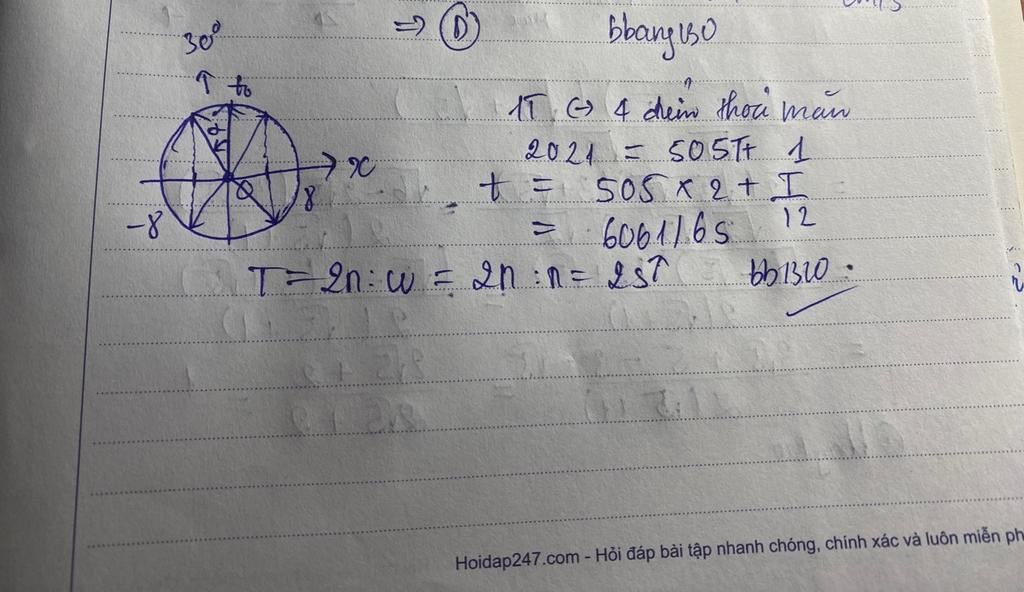 30° ⇒ D bbang130
↑ t₀
1T ↔ 4 điểm thoả mãn
2021 = 505T + 1
t = 505 × 2 + T/12
= 6061/6s
α
x
O
-8 8
T = 2π : ω = 2π : π = 2s↑ bb1310.
Hoidap247.com - Hỏi đáp bài tập nhanh chóng, chính xác và luôn miễn ph